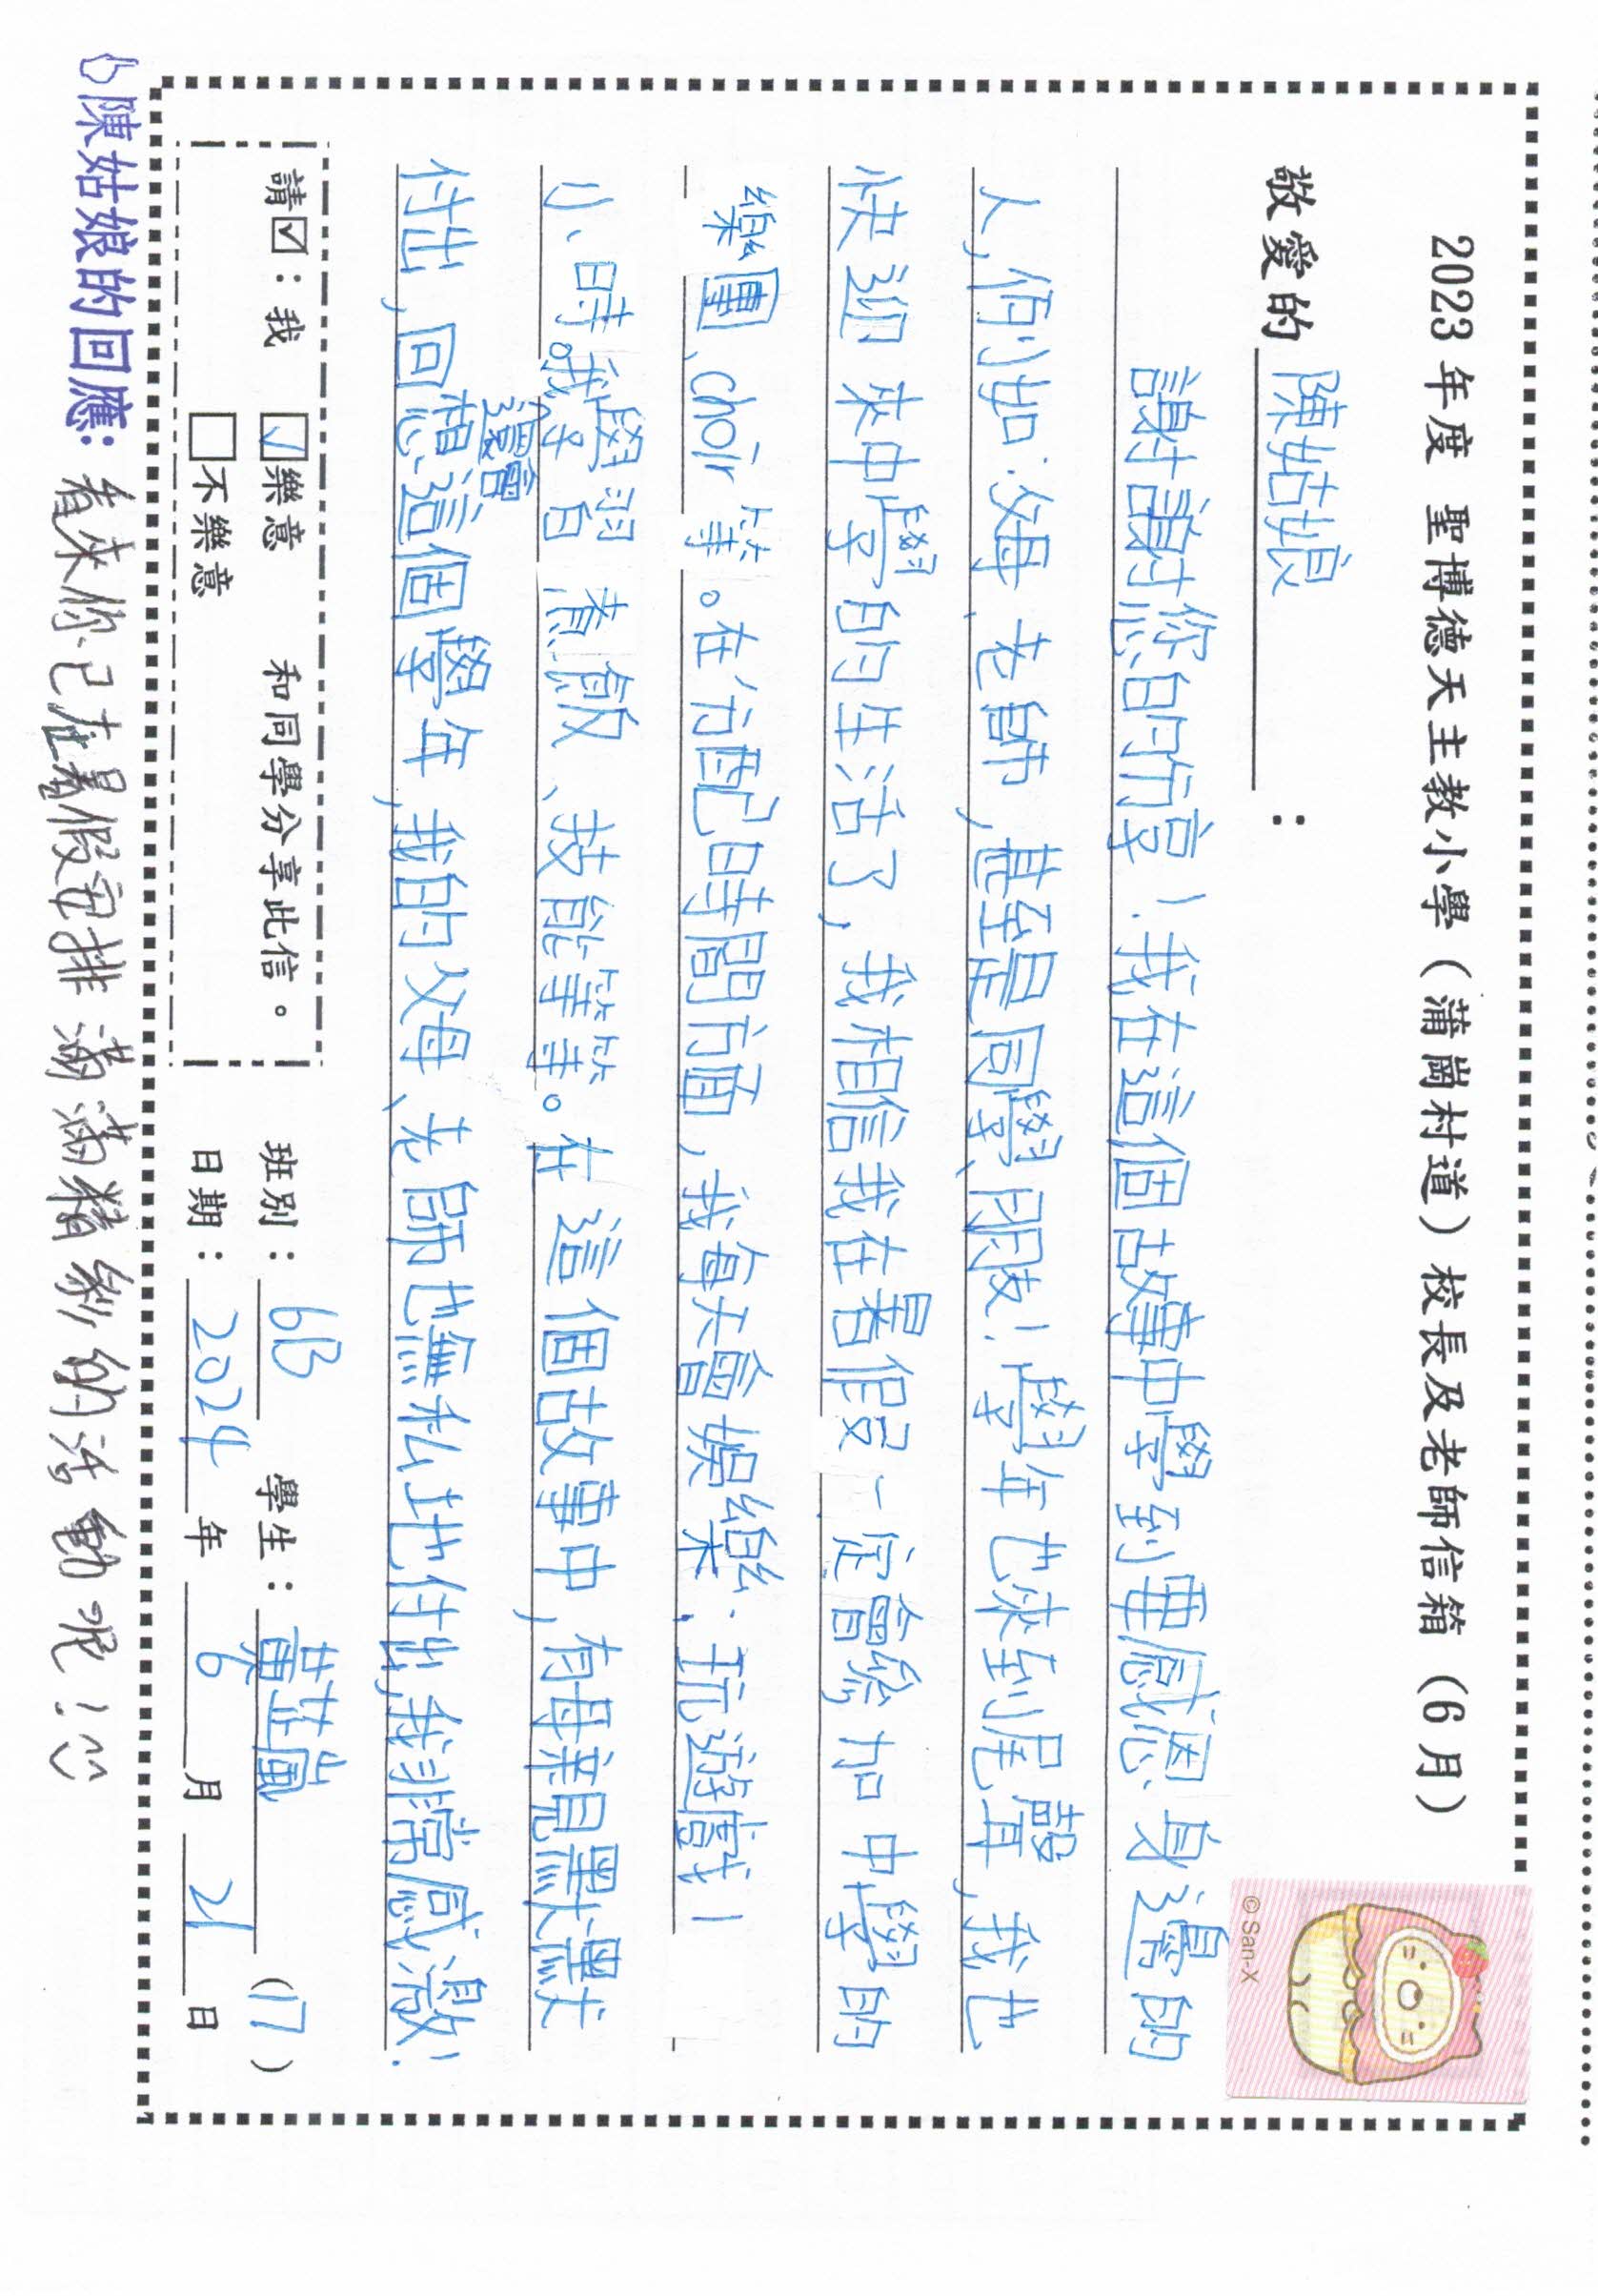 2023 年度 聖博德天主教小學（蒲崗村道）校長及老師信箱（6 月）
敬愛的 陳姑娘 ：
謝謝您的分享！我在這個故事中學到要感恩身邊的
人，例如：父母、老師，甚至是同學、朋友！學年也來到尾聲，我也
快迎來中學的生活了，我相信我在暑假一定會參加中學的
樂團、choir 等。在分配時間方面，我每天會娛樂：玩遊戲1
小時。我還會學習煮飯、技能等等。在這個故事中，有母親見默默
付出，回想這個學年，我的父母、老師也無私地付出，我非常感激！
請☑：我 ☑樂意 和同學分享此信。
□不樂意
班別：6B 學生：黃芷 (17)
日期：2024 年 6 月 21 日
陳姑娘的回應：看來你已在暑假安排滿滿精彩的活動呢！
© San-X